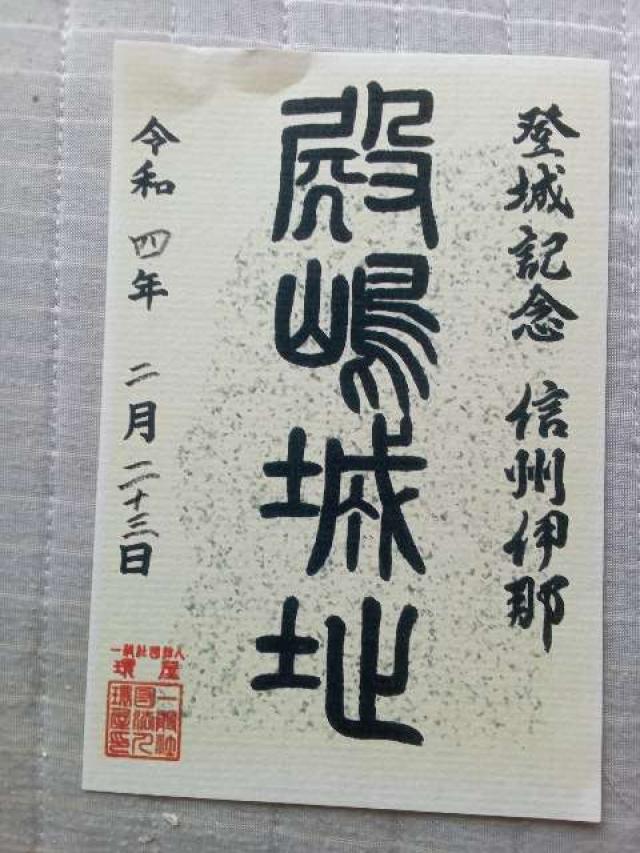 登城記念 信州伊那
殿嶋城址
令和四年 二月二十三日
一般社団法人
環屋